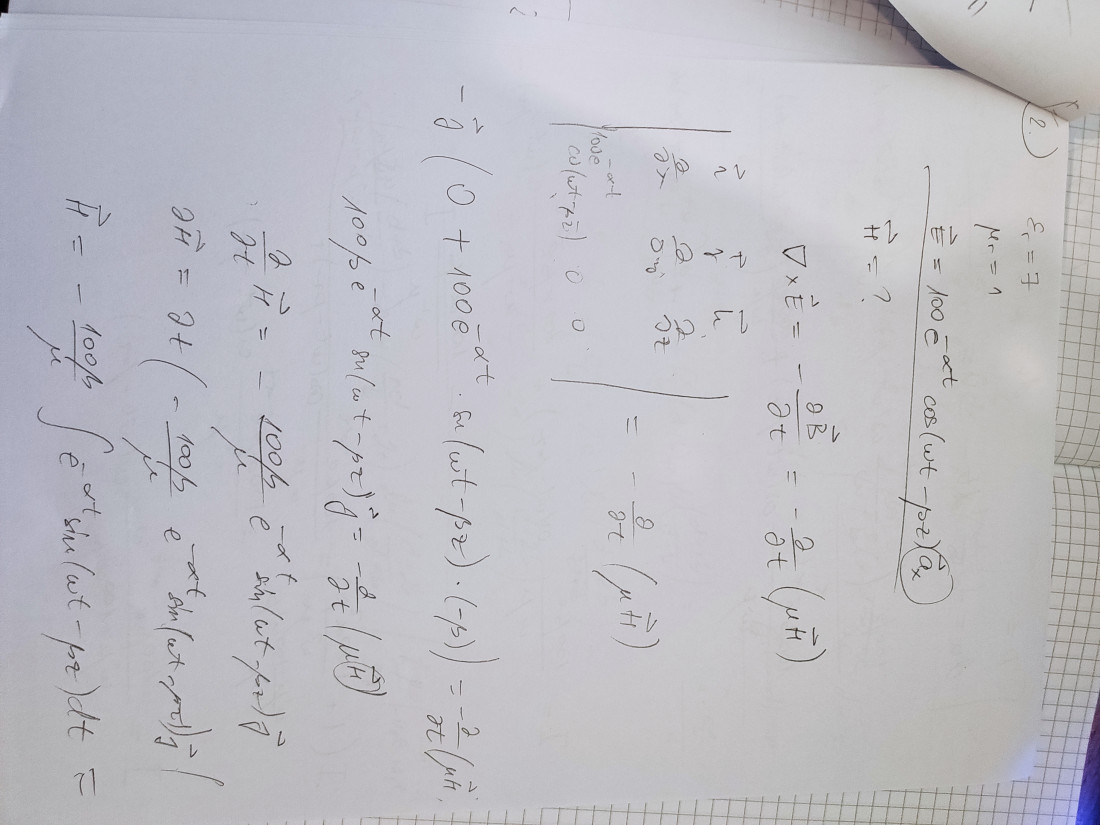 2.)
εr = 7
μr = 1
E⃗ = 100 e^-αt cos(ωt - βz) a⃗x
H⃗ = ?
∇ × E⃗ = - ∂B⃗/∂t = - ∂/∂t (μH⃗)
| i⃗ j⃗ k⃗ |
| ∂/∂x ∂/∂y ∂/∂z | = - ∂/∂t (μH⃗)
| 100e^-αt cos(ωt - βz) 0 0 |
- j⃗ (0 + 100e^-αt · sin(ωt - βz) · (-β)) = -∂/∂t (μH⃗)
100β e^-αt sin(ωt - βz) j⃗ = -∂/∂t (μH⃗)
∂/∂t H⃗ = - 100β/μ e^-αt sin(ωt - βz) j⃗
∂H⃗ = ∂t (- 100β/μ e^-αt sin(ωt - βz) j⃗ /
H⃗ = - 100β/μ ∫ e^-αt sin(ωt - βz) dt =